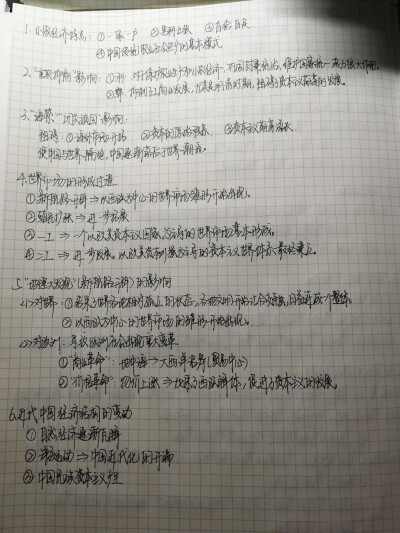 1. 小农经济特点：① 一家一户 ② 男耕女织 ③ 自给自足
④ 中国传统农业社会生产的基本模式
2. "重农抑商"影响：① 积：对于保护农业生产和小农经济，巩固封建统治，
② 弊：抑制了工商业发展，尤其是明清时期，阻碍了资本主义萌芽的发展。
3. "海禁""闭关锁国"影响：
阻碍：① 海外市场开拓 ② 资本的原始积累 ③ 资本主义萌芽滋长
使中国与世界隔绝，中国逐渐落后于世界潮流。
4. 世界市场的形成过程
① 新航路开辟 ⇒ 以西欧为中心的世界市场雏形开始出现。
② 殖民扩张 ⇒ 进一步拓展
③ 一工 ⇒ 一个以欧美资本主义国家为主导的世界市场基本形成。
④ 二工 ⇒ 进一步发展，以欧美资本主义列强为主导的资本主义世界体系最终建立。
5. "地理大发现"（新航路开辟）的影响
<1>对世界：① 结束了世界各地相对孤立的状态，各地文明开始汇合交融，日益连成一个整体。
② 以西欧为中心的世界市场的雏形开始出现。
<2>对欧洲：导致欧洲社会出现重大变革
① "商业革命"：地中海 ⇒ 大西洋沿岸（贸易中心）
② "价格革命"：物价上涨 ⇒ 加速了西欧解体，促进了资本主义的发展。
6. 近代中国经济结构的变动
① 自然经济逐渐解体
② 洋务运动 ⇒ 中国近代化的开端
③ 中国民族资本主义产生